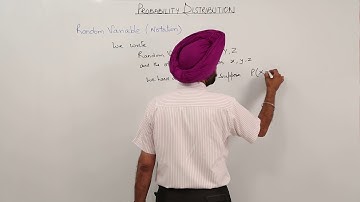 PROBABILITY DISTRIBUTION
Random Variable (Notation)
We write
Random Y, Z
and the x, y, z
We have suppose P(x